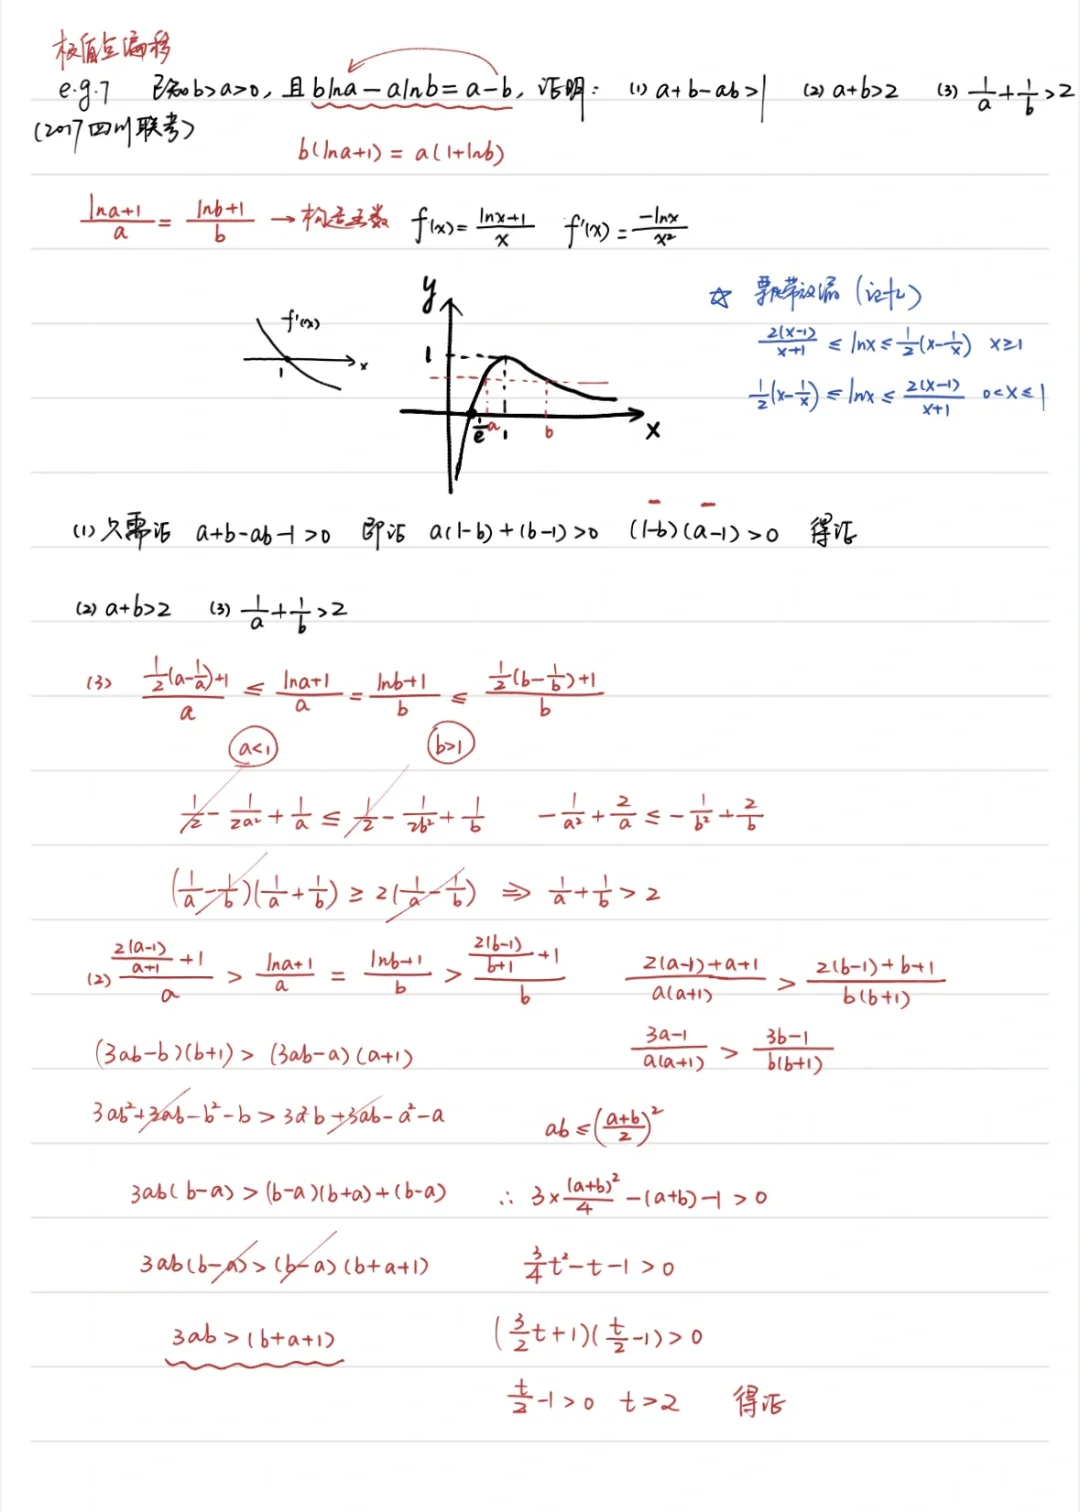 极值点偏移
e.g.7 已知b>a>0, 且blna-alnb=a-b, 证明: (1) a+b-ab>1 (2) a+b>2 (3) 1/a+1/b>2
(2017四川联考)
b(lna+1) = a(1+lnb)
(lna+1)/a = (lnb+1)/b → 构造函数 f(x)=(lnx+1)/x f'(x)=-lnx/x²
☆ 飘带放缩 (记忆)
2(x-1)/(x+1) ≤ lnx ≤ 1/2(x-1/x) x≥1
1/2(x-1/x) ≤ lnx ≤ 2(x-1)/(x+1) 0<x≤1
f'(x)
x
1
y
1
1/e a 1 b x
(1) 只需证 a+b-ab-1>0 即证 a(1-b)+(b-1)>0 (1-b)(a-1)>0 得证
- -
(2) a+b>2 (3) 1/a+1/b>2
(3) (1/2(a-1/a)+1)/a ≤ (lna+1)/a = (lnb+1)/b ≤ (1/2(b-1/b)+1)/b
a<1 b>1
1/2 - 1/2a² + 1/a ≤ 1/2 - 1/2b² + 1/b -1/a² + 2/a ≤ -1/b² + 2/b
(1/a-1/b)(1/a+1/b) ≥ 2(1/a-1/b) ⇒ 1/a+1/b > 2
(2) (2(a-1)/(a+1)+1)/a > (lna+1)/a = (lnb+1)/b > (2(b-1)/(b+1)+1)/b (2(a-1)+a+1)/(a(a+1)) > (2(b-1)+b+1)/(b(b+1))
(3ab-b)(b+1) > (3ab-a)(a+1) (3a-1)/(a(a+1)) > (3b-1)/(b(b+1))
3ab²+3ab-b²-b > 3a²b+3ab-a²-a ab ≤ ((a+b)/2)²
3ab(b-a) > (b-a)(b+a)+(b-a) ∴ 3×(a+b)²/4-(a+b)-1 > 0
3ab(b-a) > (b-a)(b+a+1) 3/4t²-t-1 > 0
3ab > (b+a+1) (3/2t+1)(t/2-1) > 0
t/2-1>0 t>2 得证